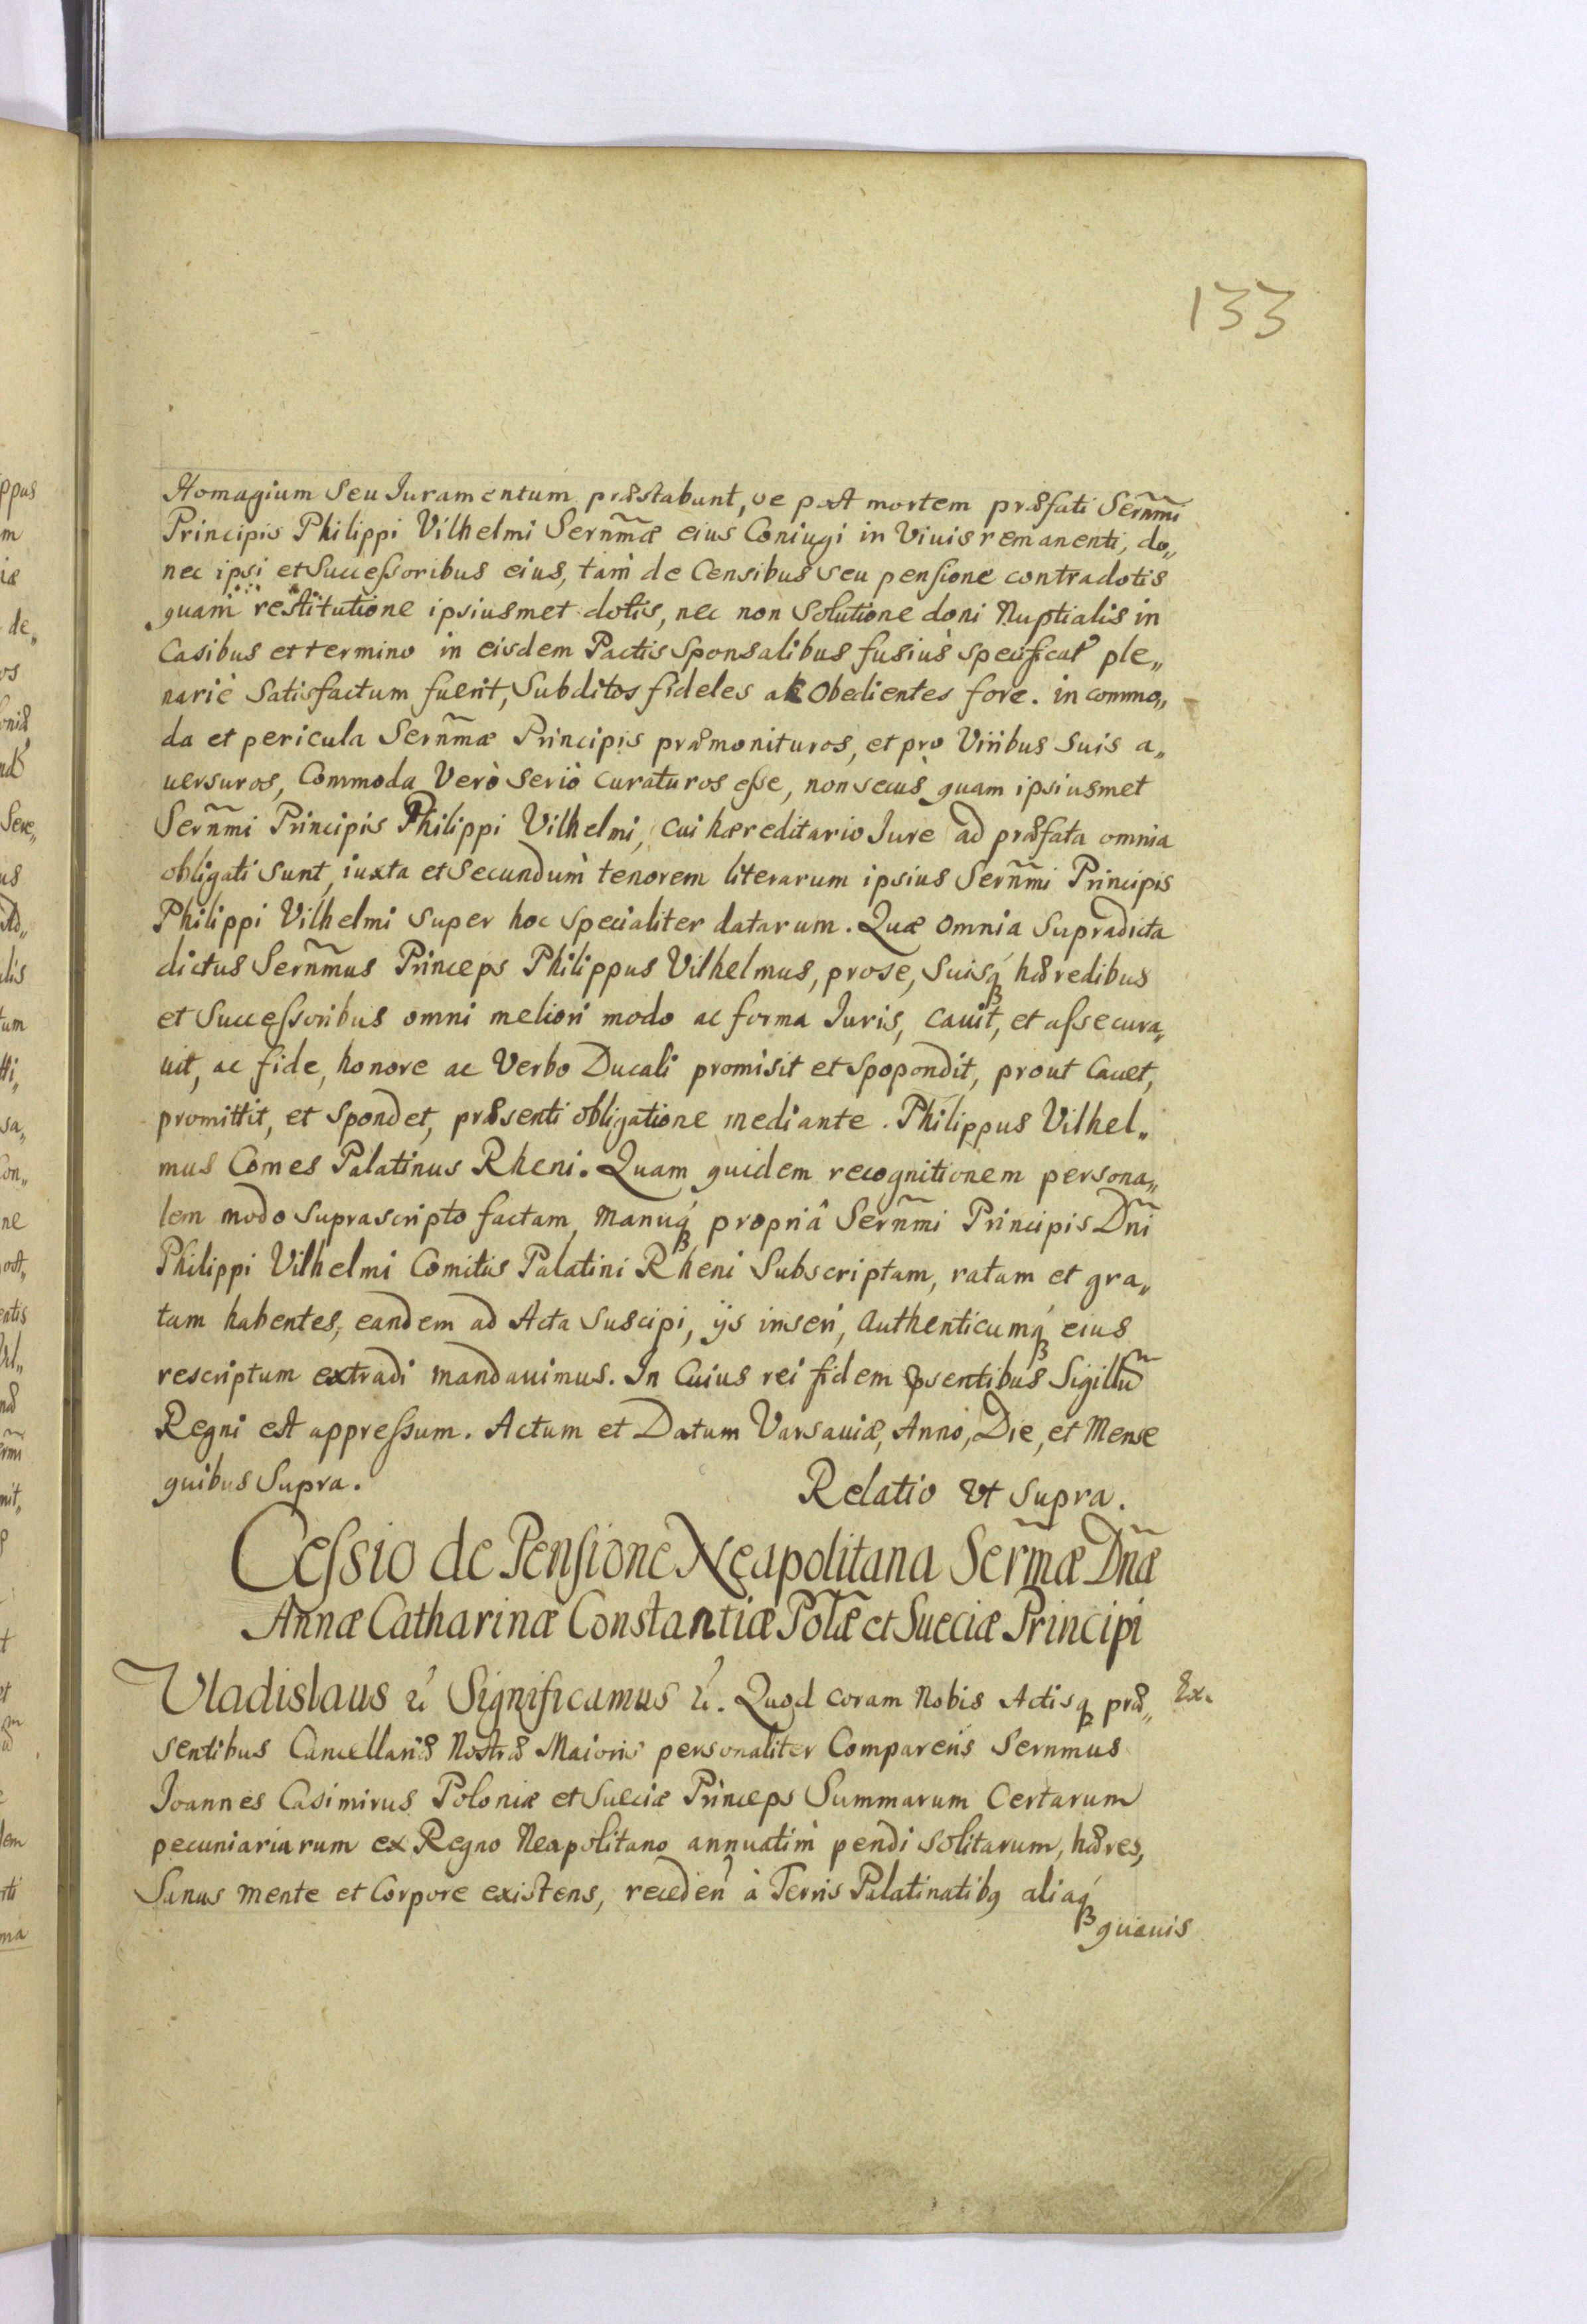 133
Homagium seu Iuramentum præstabunt, ve post mortem præfati Sernm̃i
Principis Philippi Vilhelmi Sernm̃æ eius Coniugi in Viuis remanenti, do„
nec ipsi et Successoribus eius, tam de Censibus seu pensione contradotis
quam restitutione ipsiusmet dotis, nec non Solutione doni Nuptialis in
Casibus et termino in eisdem Pactis Sponsalibus fusius specificat ple„
narie Satisfactum fuerit, Subditos fideles ac Obedientes fore. in commo„
da et pericula Serñmæ Principis præmonituros, et pro Viribus suis a„
uersuros, Commoda Verò seriò curaturos esse, non secus quam ipsiusmet
Serñmi Principis Philippi Vilhelmi, cui hæreditario Iure ad præfata omnia
obligati sunt, iuxta et secundum tenorem literarum ipsius Serñmi Principis
Philippi Vilhelmi super hoc specialiter datarum. Quæ omnia Supradicta
dictus Serñmus Princeps Philippus Vilhelmus, pro se, suisq hæredibus
et Successoribus omni meliori modo ac forma Iuris, cauit, et assecura„
uit, ac fide, honore ac Verbo Ducali promisit et Spopondit, prout Cauet,
promittit, et Spondet, præsenti obligatione mediante. Philippus Vilhel„
mus Comes Palatinus Rheni. Quam quidem recognitionem persona„
lem modo suprascripto factam, manuq propriâ Serñmi Principis Dñi
Philippi Vilhelmi Comitis Palatini Rheni Subscriptam, ratam et gra„
tam habentes, eandem ad Acta suscipi, ijs inseri, Authenticumq eius
rescriptum extradi mandauimus. In Cuius rei fidem psentibus Sigillũ
Regni est appressum. Actum et Datum Varsauiæ, Anno, Die, et Mense
quibus Supra.
Relatio vt supra.
Cessio de Pensione Neapolitana Serm̃æ Dñæ
Annæ Catharinæ Constantiæ Pol̃æ et Sueciæ Principi
Vladislaus &c Significamus &c. Quod coram Nobis Actisq præ„
Ex.
sentibus Cancellariæ Nostræ Maioris personaliter Comparens Sernmus
Ioannes Casimirus Poloniæ et Sueciæ Princeps Summarum Certarum
pecuniariarum ex Regno Neapolitano annuatim pendi solitarum, hæres,
Sanus mente et Corpore existens, receden à Terris Palatinatibq aliaq
quauis